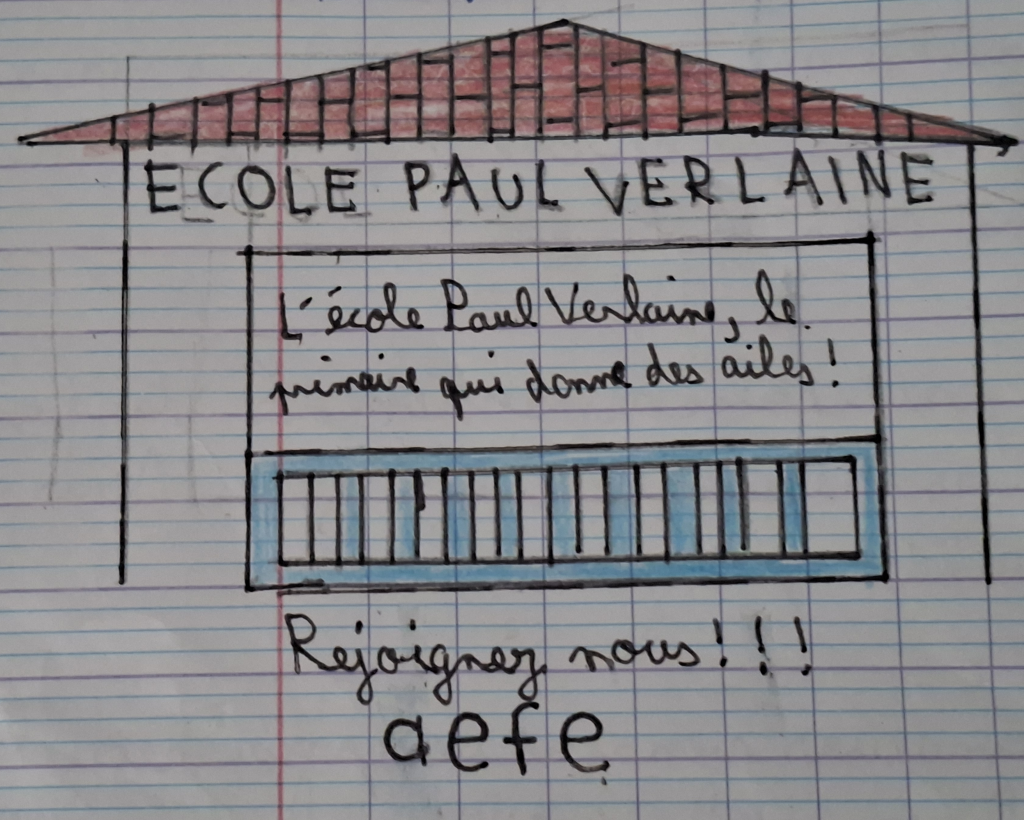 ECOLE PAUL VERLAINE
L'école Paul Verlaine, le
primaire qui donne des ailes !
Rejoignez nous ! ! !
aefe